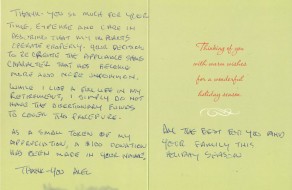 THANK-YOU SO MUCH FOR YOUR
TIME, EXPENSE AND CARE IN
ASSURING THAT MY
OPERATE PROPERLY. YOUR DECISION
TO THE APPLIANCE SHOWS
CHARACTER THAT HAS BECOME
MORE AND MORE UNCOMMON.
WHILE I LIVE A FINE LIFE IN MY
RETIREMENT, I SIMPLY DO NOT
HAVE THE DISCRETIONARY FUNDS
TO COVER THE PROCEDURE.
AS A SMALL TOKEN OF MY
APPRECIATION, A $100 DONATION
HAS BEEN MADE IN YOUR NAME.
THANK-YOU
Thinking of you
with warm wishes
for a wonderful
holiday season
ALL THE BEST FOR YOU AND
YOUR FAMILY THIS
HOLIDAY SEASON